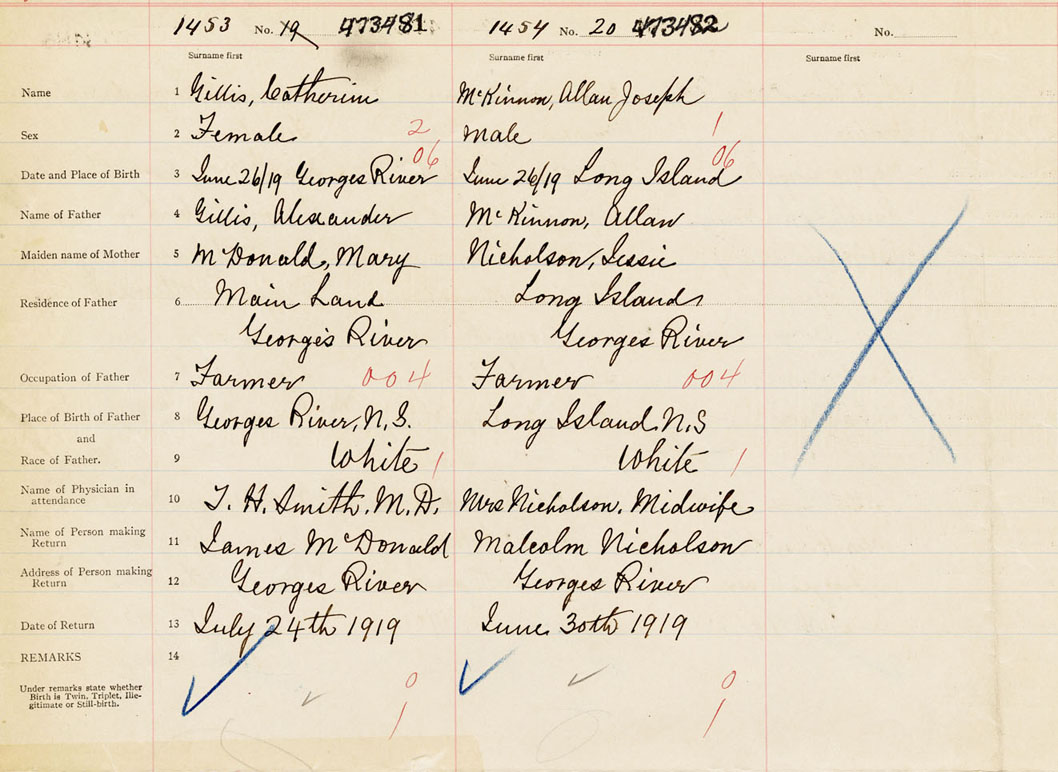 1453 No. 19 473481 1454 No. 20 473482 No.
Surname first Surname first Surname first
Name 1 Gillis, Catherine McKinnon, Allan Joseph
Sex 2 Female 2 Male 1
06 06
Date and Place of Birth 3 June 26/19 Georges River June 26/19 Long Island
Name of Father 4 Gillis, Alexander McKinnon, Allan
Maiden name of Mother 5 McDonald, Mary Nicholson, Jessie
Residence of Father 6 Main Land Long Island
Georges River Georges River
Occupation of Father 7 Farmer 004 Farmer 004
Place of Birth of Father 8 Georges River, N.S. Long Island N.S
and
Race of Father. 9 White 1 White 1
Name of Physician in
attendance 10 T. H. Smith, M.D. Mrs Nicholson, Midwife
Name of Person making
Return 11 James McDonald Malcolm Nicholson
Address of Person making
Return 12 Georges River Georges River
Date of Return 13 July 24th 1919 June 30th 1919
REMARKS 14
Under remarks state whether
Birth is Twin, Triplet, Ille-
gitimate or Still-birth.
0 0
1 1